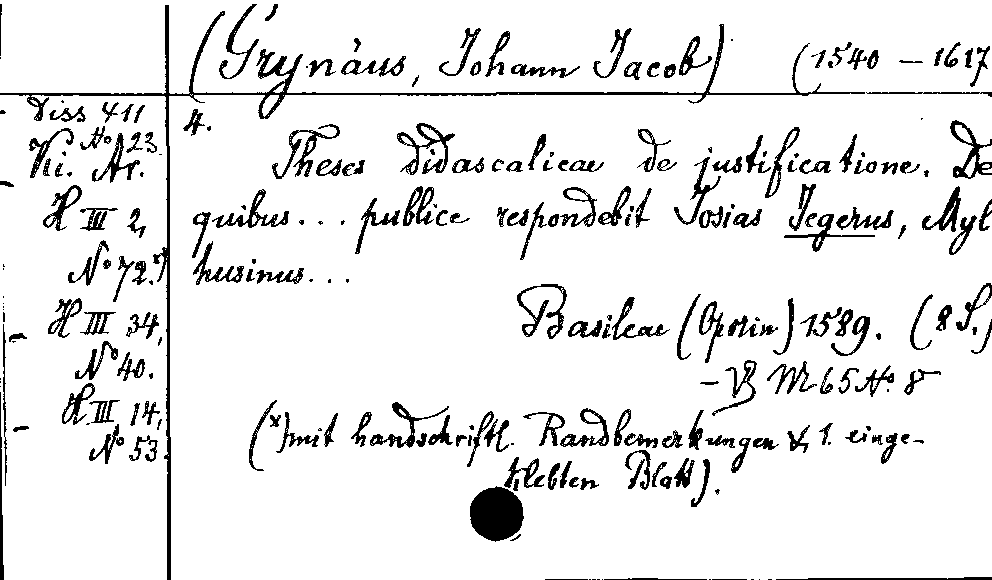 (Grynäus, Johann Jacob) (1540 – 1617
Diss 411
No 23
Ki. Ar.
H III 2,
No 72.x)
H III 34,
No 40.
H III 14,
No 53.
4.
Theses didascalicae de justificatione. De
quibus... publice respondebit Josias Jegerus, Myl
husinus...
Basileae (Oporin) 1589. (8 S.)
– VB M 65 No. 8
(x) mit handschriftl. Randbemerkungen & 1. einge-
klebten Blatt).